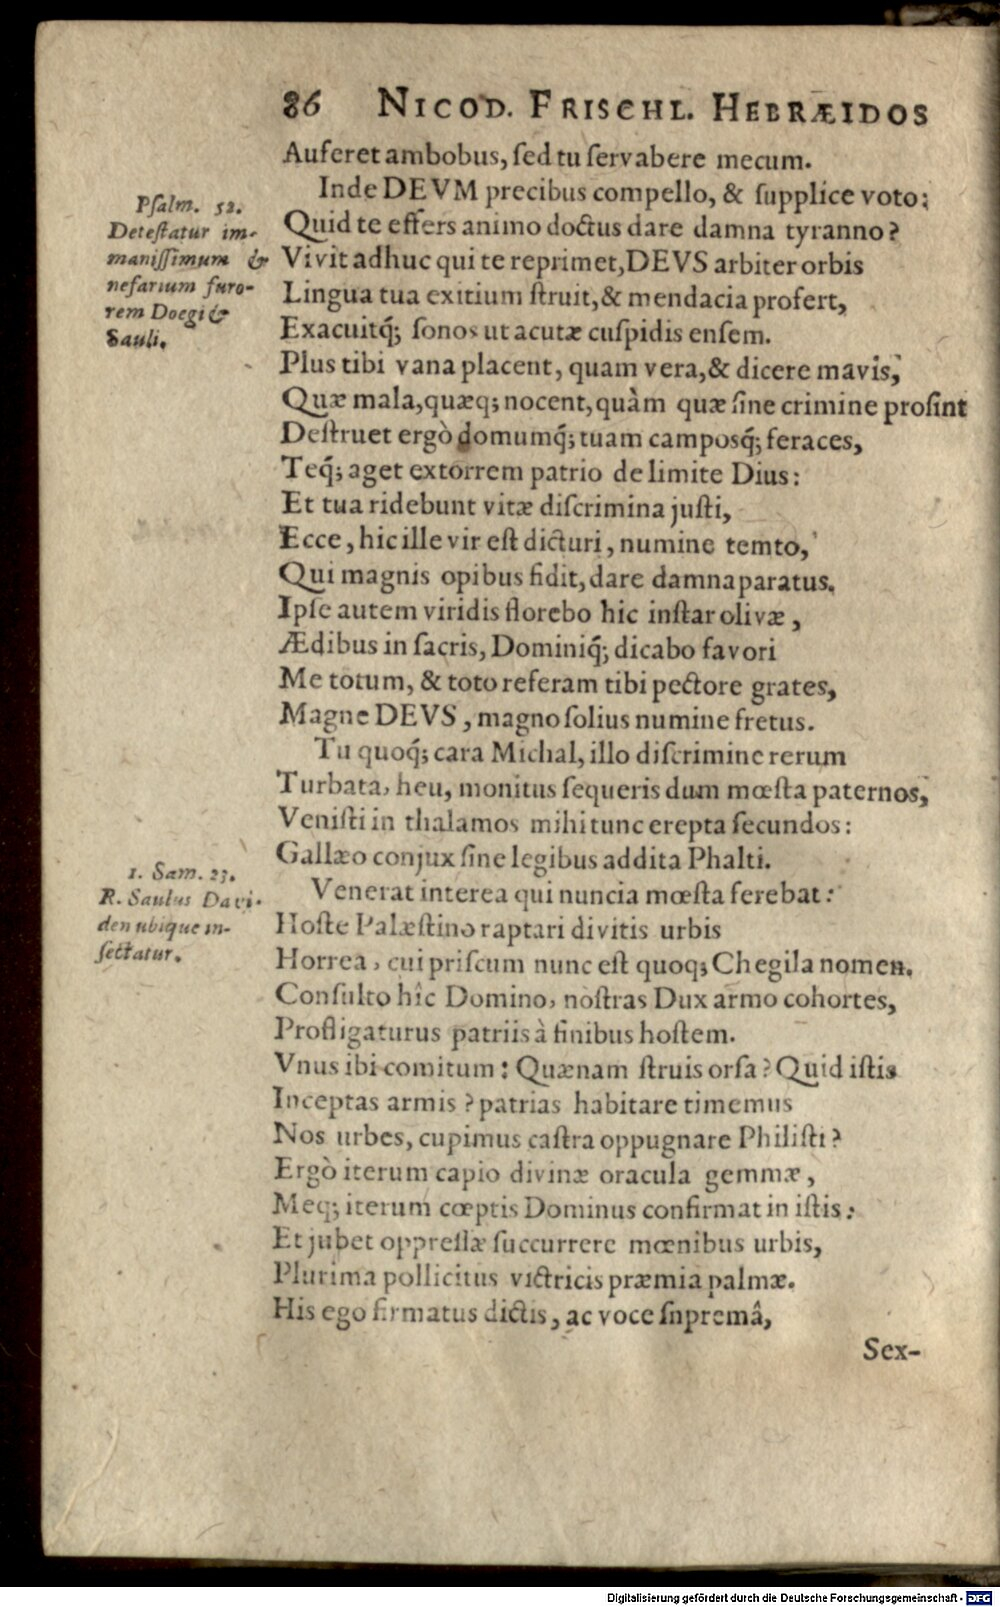 86 NICOD. FRISCHL. HEBRÆIDOS
Auferet ambobus, ſed tu ſervabere mecum.
Inde DEVM precibus compello, & ſupplice voto:
Quid te effers animo doctus dare damna tyranno?
Vivit adhuc qui te reprimet, DEVS arbiter orbis
Lingua tua exitium ſtruit, & mendacia profert,
Exacuitq́; ſonos ut acutæ cuſpidis enſem.
Plus tibi vana placent, quam vera, & dicere mavis,
Quæ mala, quæq; nocent, quàm quæ ſine crimine proſint
Deſtruet ergò domumq́; tuam camposq́; feraces,
Teq́; aget extorrem patrio de limite Dius:
Et tua ridebunt vitæ diſcrimina juſti,
Ecce, hic ille vir eſt dicturi, numine temto,
Qui magnis opibus fidit, dare damna paratus.
Ipſe autem viridis florebo hic inſtar olivæ,
Ædibus in ſacris, Dominiq́; dicabo favori
Me totum, & toto referam tibi pectore grates,
Magne DEVS, magno ſolius numine fretus.
Tu quoq́; cara Michal, illo diſcrimine rerum
Turbata, heu, monitus ſequeris dum mœſta paternos,
Veniſti in thalamos mihi tunc erepta ſecundos:
Gallæo conjux ſine legibus addita Phalti.
Venerat interea qui nuncia mœſta ferebat:
Hoſte Palæſtino raptari divitis urbis
Horrea, cui priſcum nunc eſt quoq; Chegila nomen.
Conſulto hîc Domino, noſtras Dux armo cohortes,
Profligaturus patriis à finibus hoſtem.
Vnus ibi comitum: Quænam ſtruis orſa? Quid iſtis
Inceptas armis? patrias habitare timemus
Nos urbes, cupimus caſtra oppugnare Philiſti?
Ergò iterum capio divinæ oracula gemmæ,
Meq; iterum cœptis Dominus confirmat in iſtis:
Et jubet oppreſſæ ſuccurrere mœnibus urbis,
Plurima pollicitus victricis præmia palmæ.
His ego firmatus dictis, ac voce ſnpremâ,
Sex-
Pſalm. 52.
Deteſtatur im-
maniſſimum &
nefarium furo-
rem Doegi &
Sauli.
1. Sam. 23.
R. Saulus Davi-
den ubique in-
ſectatur.
Digitalisierung gefördert durch die Deutsche Forschungsgemeinschaft - DFG